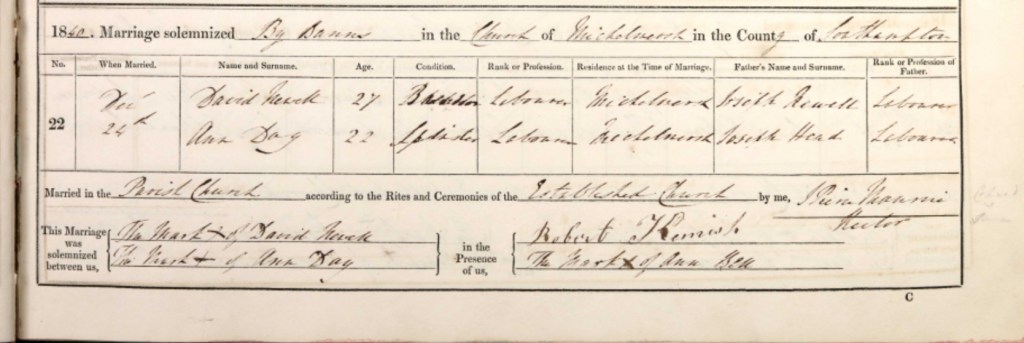 1840. Marriage solemnized By Banns in the Church of Michelmersh in the County of Southampton
No. When Married. Name and Surname. Age. Condition. Rank or Profession. Residence at the Time of Marriage. Father's Name and Surname. Rank or Profession of Father.
22 Decr David Newell 27 Bachelor Labourer Michelmersh Joseph Newell Labourer
24th Ann Day 22 Spinster Labourer Michelmersh Joseph Head Labourer
Married in the Parish Church according to the Rites and Ceremonies of the Established Church by me,
Rector
This Marriage was solemnized between us, The Mark + of David Newell in the Presence of us, Robert Kemish
The Mark + of Ann Day The Mark x of Ann Bell
C